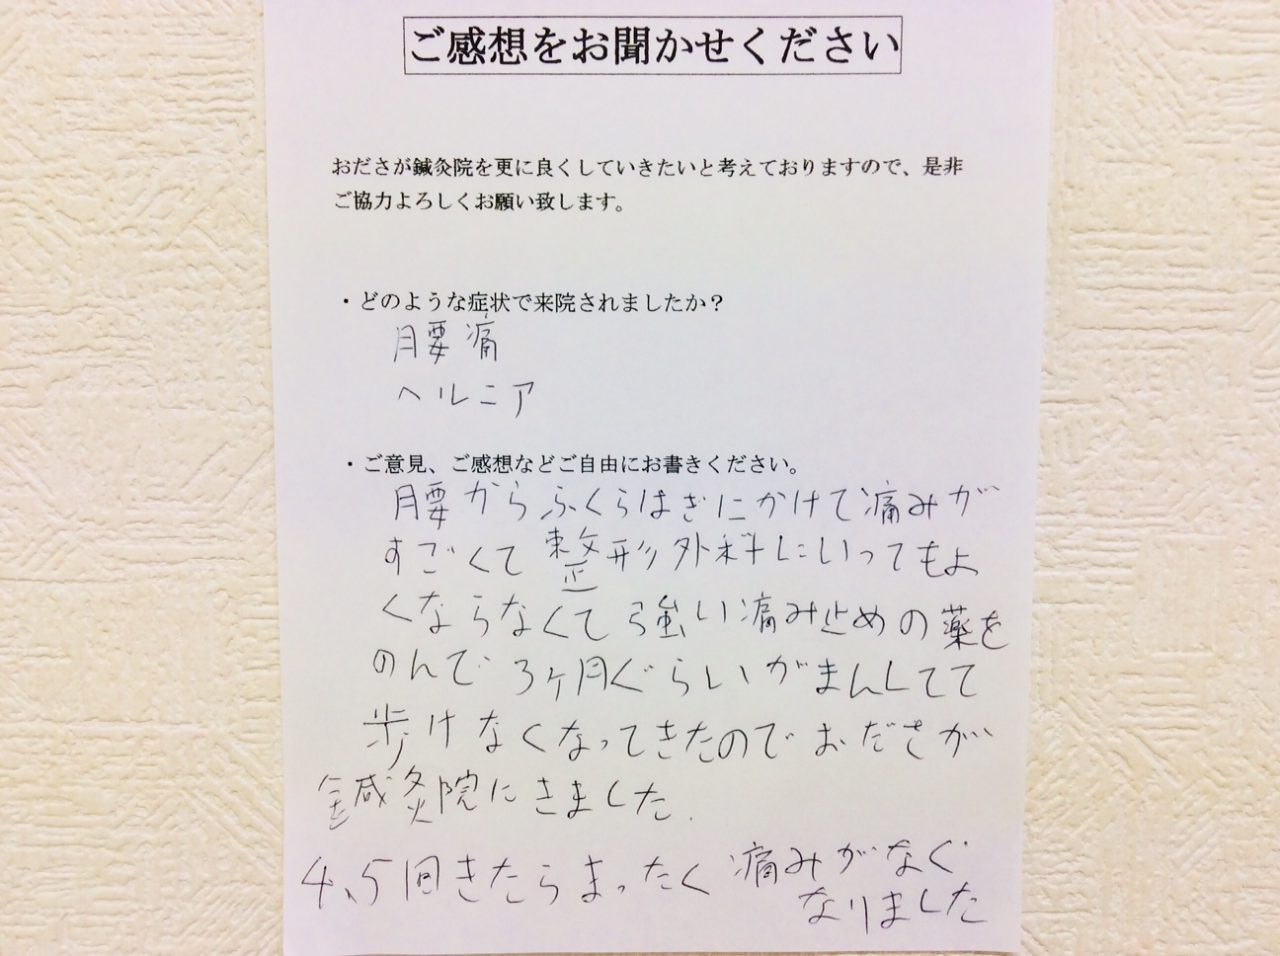 ご感想をお聞かせください
おださが鍼灸院を更に良くしていきたいと考えておりますので、是非
ご協力よろしくお願い致します。
・どのような症状で来院されましたか？
腰痛
ヘルニア
・ご意見、ご感想などご自由にお書きください。
腰からふくらはぎにかけて痛みが
すごくて整形外科にいってもよ
くならなくて強い痛み止めの薬を
のんで3ヶ月ぐらいがまんしてて
歩けなくなってきたのでおださが
鍼灸院にきました.
4、5回きたらまったく痛みがなく
なりました